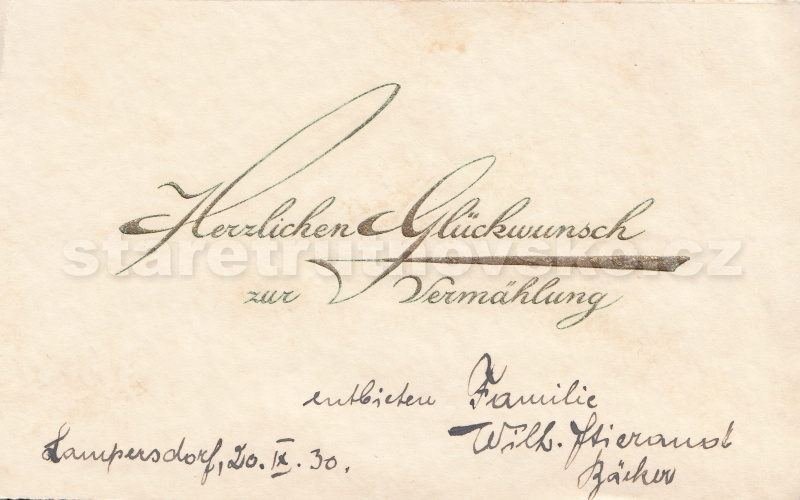 Herzlichen Glückwunsch
staretrutnovsko.cz
zur Vermählung
entbieten Familie
Wilh.
Bäcker
Lampersdorf, 20. IX. 30.